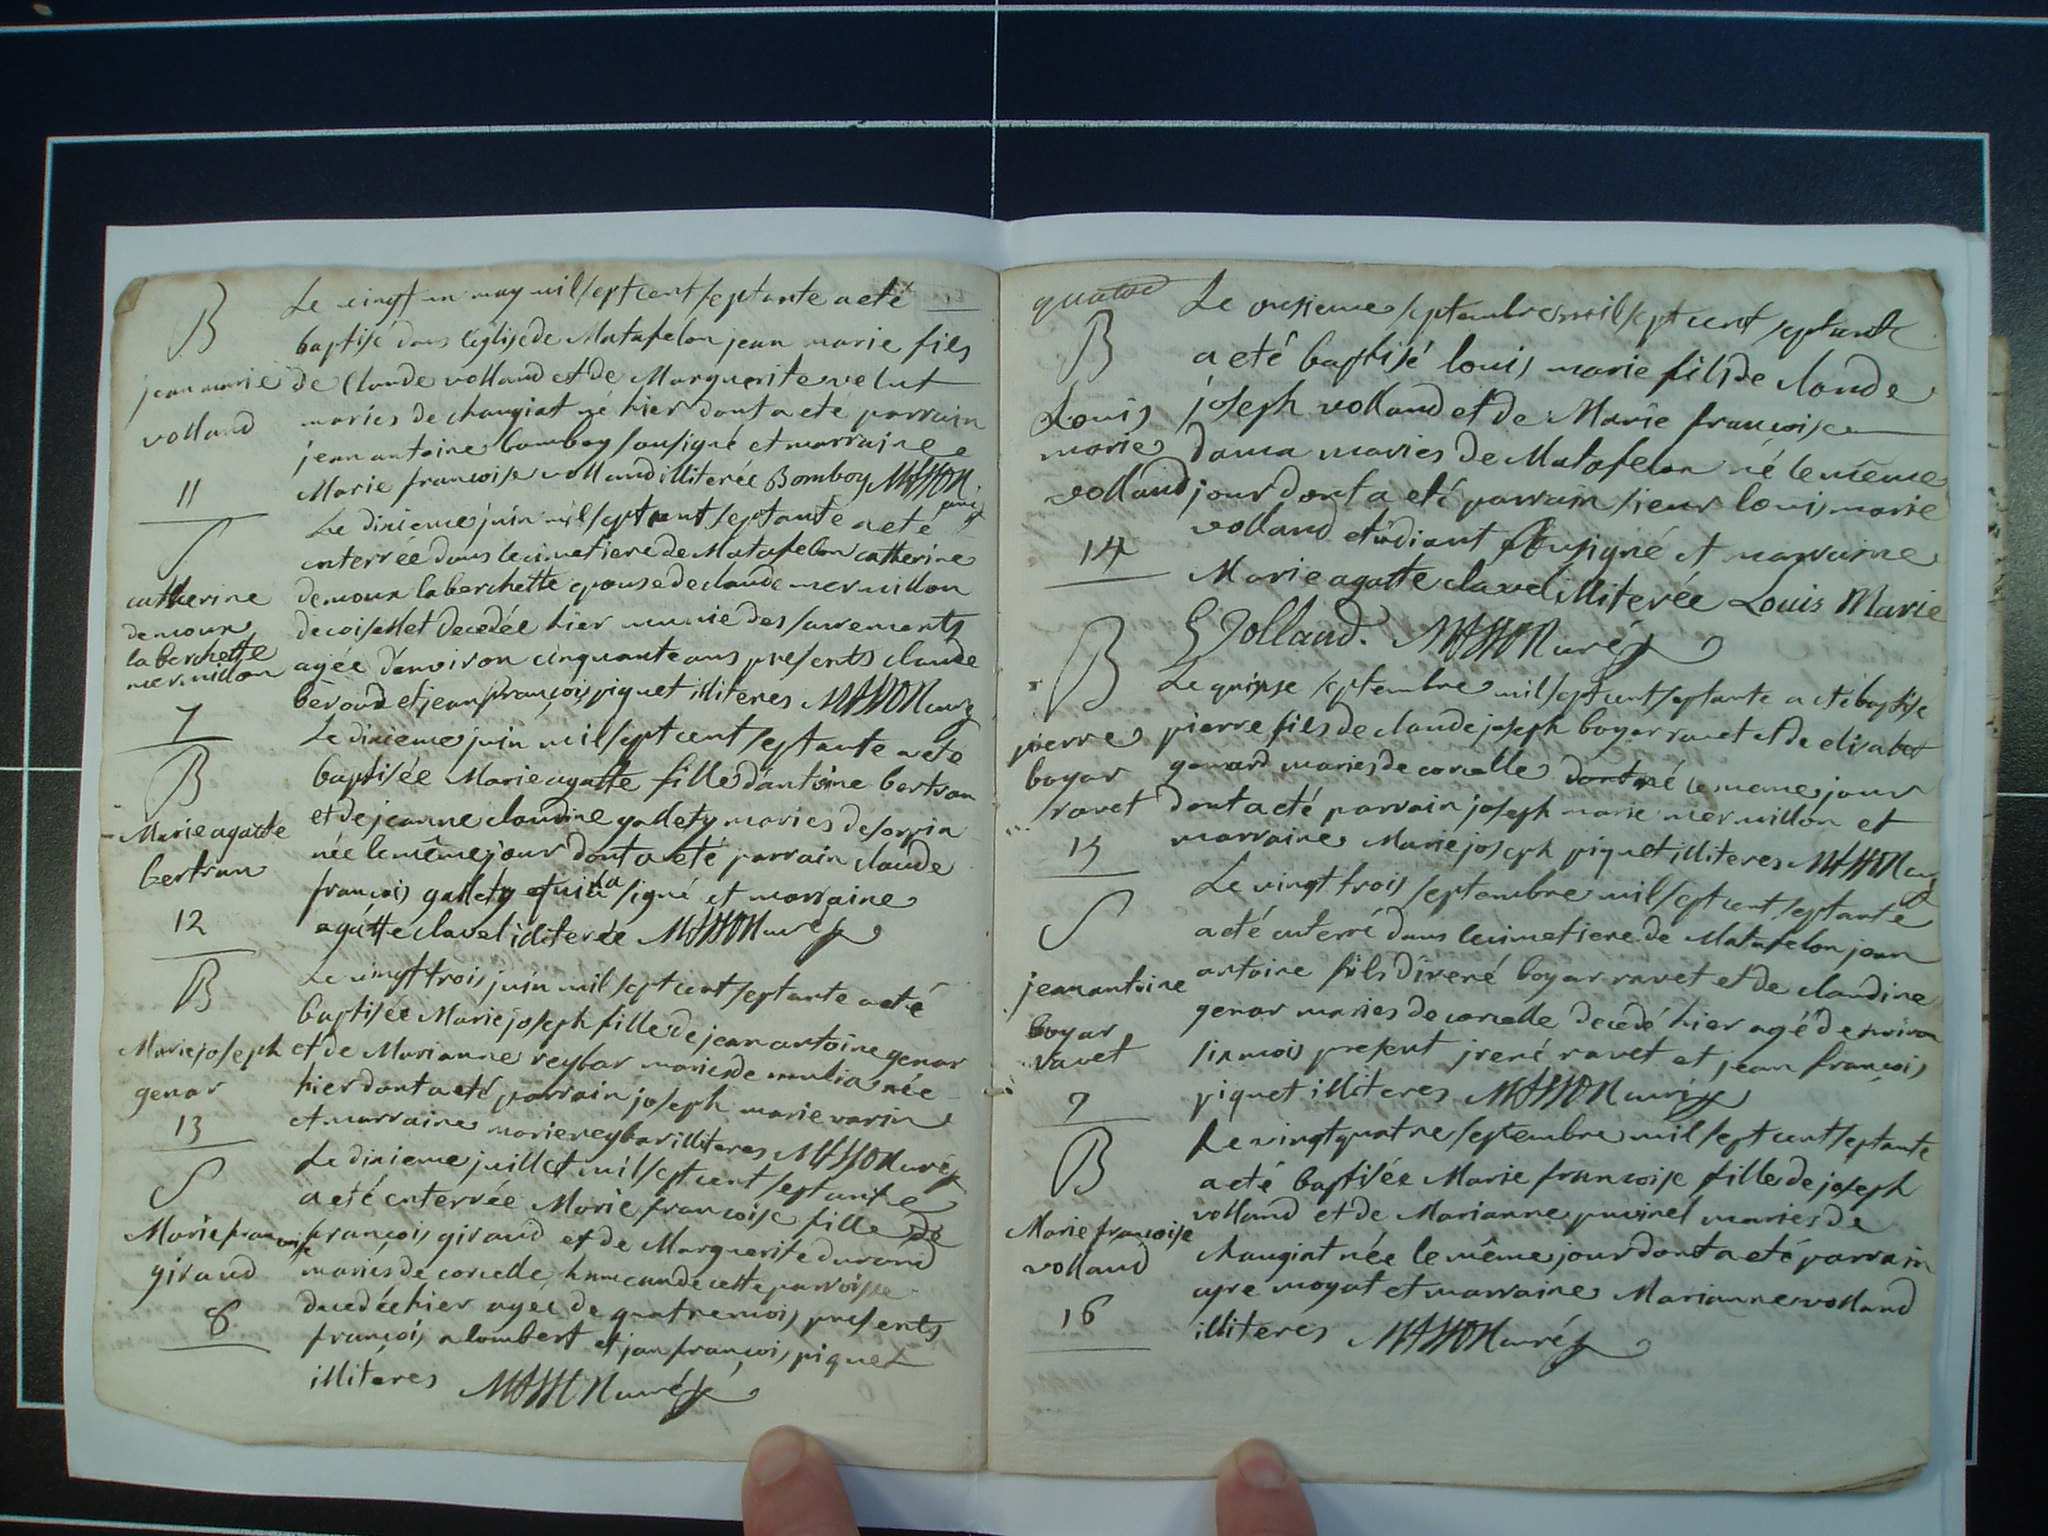 B
jean marie
volland
11
Le vingt un may mil sept cent septante a eté
baptisé dans l'église de Matafelon jean marie fils
de Claude volland et de Marguerite velut
mariés de changiat né hier dont a eté parrain
jean antoine bomboy sousigné et marraine
Marie francoise volland illiterée Bomboy MASSON
curé
S
catherine
demoux
la berchette
mermillon
7
Le dixieme juin mil sept cent septante a eté
enterrée dans le cimetiere de Matafelon catherine
demoux la berchette epouse de claude mermillon
decoiselet decedée hier munie des sacrements
agée d'environ cinquante ans presents claude
beroud et jean françois piquet illiteres MASSON curé
B
Marie agatte
bertran
12
Le dixieme juin mil sept cent septante a eté
baptisée Marie agatte fille d'antoine bertran
et de jeanne claudine gallety mariés de sorpia
née le même jour dont a eté parrain claude
francois gallety signé et marraine
agatte clavel illiterée MASSON curé
B
Marie joseph
genar
13
Le vingt trois juin mil sept cent septante a eté
baptisée Marie joseph fille de jean antoine genar
et de Marianne reybar mariés de mulia née
hier dont a eté parrain joseph marie varin
et marraine marie reybar illiteres MASSON curé
S
Marie francoise
giraud
8
Le dixieme juillet mil sept cent septante
a eté enterrée Marie francoise fille de
françois giraud et de Marguerite durand
mariés de corcelle, hameau de cette parroisse
decedée hier agée de quatre mois, presents
françois alombert et jan françois piquet
illiteres MASSON curé
quatre
B
Louis
marie
volland
14
Le onsieme septembre mil sept cent septante
a eté baptisé louis marie fils de claude
joseph volland et de Marie francoise
dama mariés de Matafelon né le même
jour dont a eté parrain sieur louis marie
volland etudiant sousigné et marraine
Marie agatte clavel illiterée Louis Marie
Volland. MASSON curé
B
pierre
boyar
ravet
15
Le quinse septembre mil sept cent septante a eté baptisé
pierre fils de claude joseph boyar ravet et de elisabet
gonard mariés de corcelle dont né le meme jour
dont a eté parrain joseph marie mermillon et
marraine Marie joseph piquet illiteres MASSON curé
S
jean antoine
boyar
ravet
9
Le vingt trois septembre mil sept cent septante
a eté enterré dans le cimetiere de Matafelon jean
antoine fils d'irené boyar ravet et de claudine
genar mariés de corcelle decedé hier agé d'environ
six mois present irené ravet et jean françois
piquet illiteres MASSON curé
B
Marie françoise
volland
16
Le vingt quatre septembre mil sept cent septante
a eté baptisée Marie francoise fille de joseph
volland et de Marianne mariés de
changiat née le même jour dont a eté parrain
moyat et marraine Marianne volland
illiteres MASSON curé